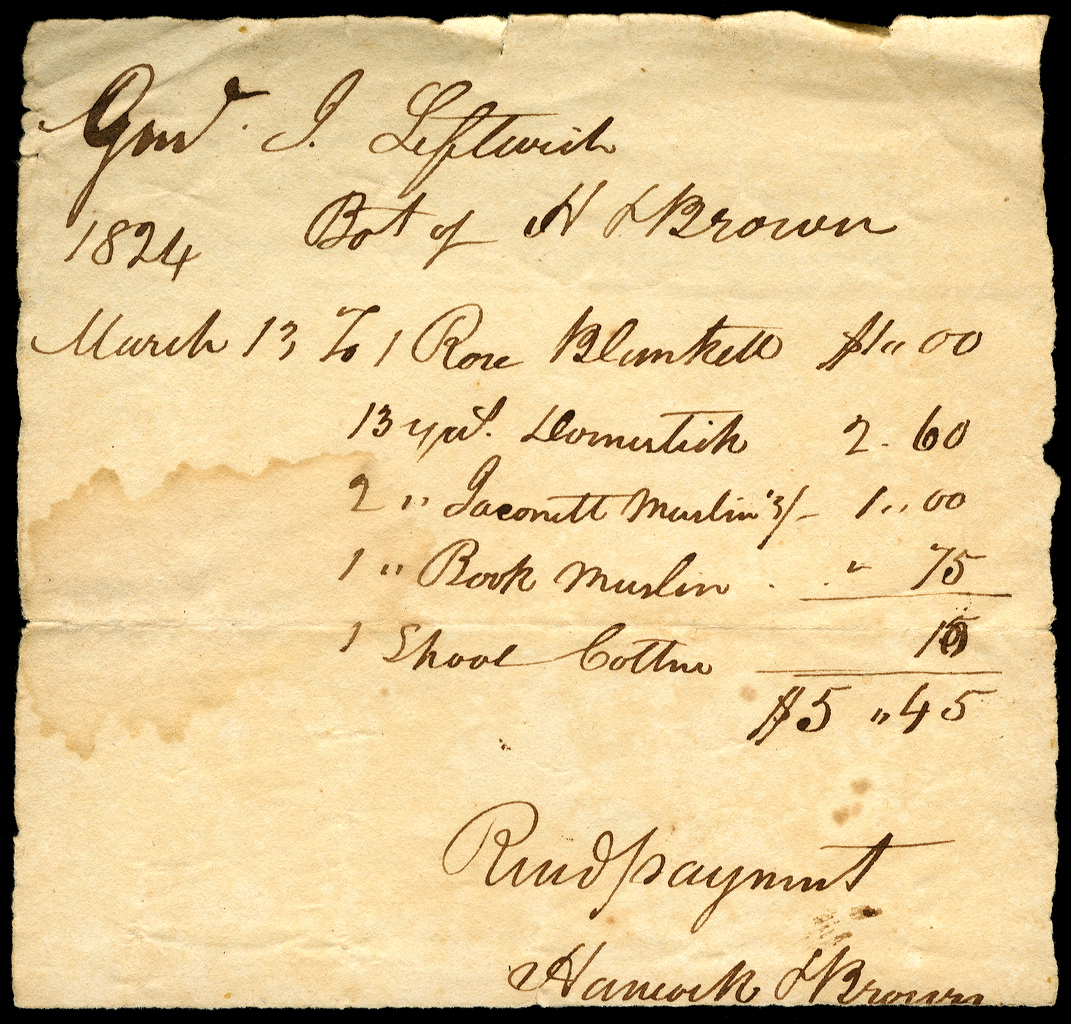 Genl. J. Leftwich
1824 Bot of H & Brown
March 13, To 1 Rose Blankett $1 " 00
13 yds. Domestick 2 - 60
2 " Jaconett Muslin 3/- 1 " 00
1 " Book Muslin " 75
1 Spool Cotton 10
$5 " 45
Recd payment
Hancock & Brown